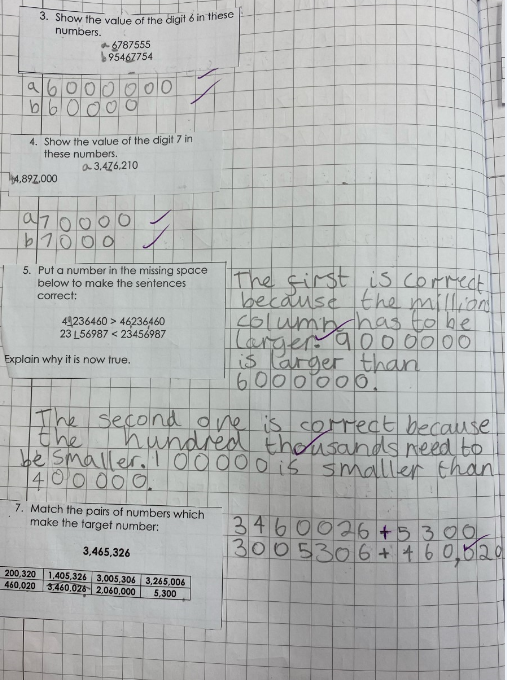 3. Show the value of the digit 6 in these
numbers.
a 6787555
b 95467754
a 6000000
b 60000
4. Show the value of the digit 7 in
these numbers.
a 3,476,210
b 4,897,000
a 70000
b 7000
5. Put a number in the missing space
below to make the sentences
correct:
49236460 > 46236460
23156987 < 23456987
Explain why it is now true.
The first is correct
because the million
column has to be
larger. 9000000
is larger than
6000000.
The second one is correct because
the hundred thousands need to
be smaller. 100000 is smaller than
400000.
7. Match the pairs of numbers which
make the target number:
3,465,326
200,320 1,405,326 3,005,306 3,265,006
460,020 3,460,026 2,060,000 5,300
3460026 + 5300
3005306 + 460,020